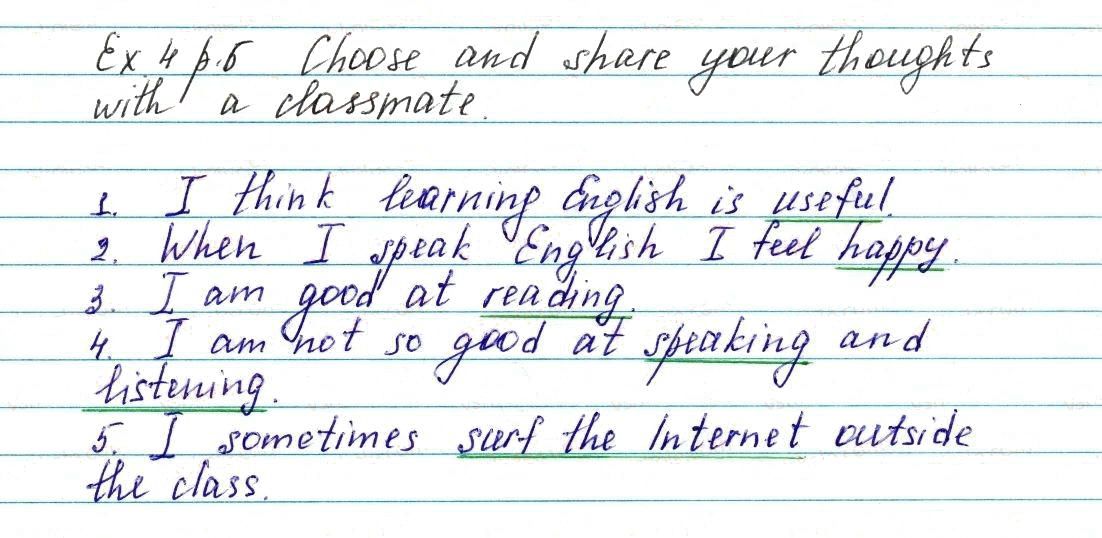 Ex 4 p.5 Choose and share your thoughts
with a classmate.
1. I think learning English is useful.
2. When I speak English I feel happy.
3. I am good at reading.
4. I am not so good at speaking and
listening.
5. I sometimes surf the Internet outside
the class.